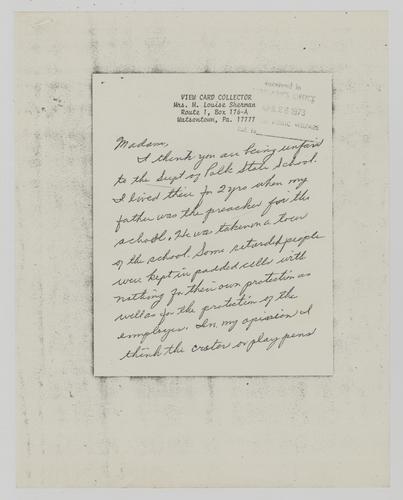 VIEW CARD COLLECTOR
Mrs. M. Louise Sherman
Route 1, Box 176-A
Watsontown, Pa. 17777
Received in
1973
Madam,
I think you are being unfair
to the Supt of Polk State School.
I lived their for 2 yrs when my
father was the preacher for the
school. He was taken on a tour
of the school. Some retarded people
were kept in padded cells with
nothing for their own protection as
well as for the protection of the
employees. In my opinion I
think the crates or play pens